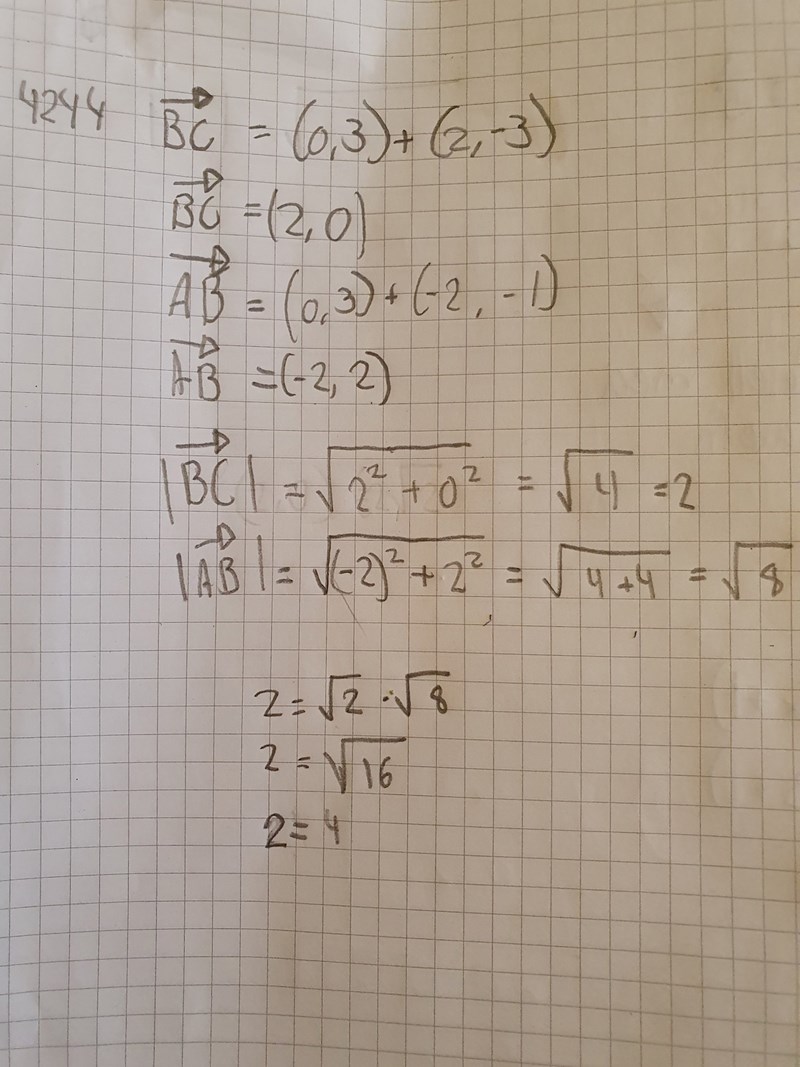 4244 \overrightarrow{BC} = (0,3)+(2,-3)
\overrightarrow{BC} =(2,0)
\overrightarrow{AB} = (0,3)+(-2,-1)
\overrightarrow{AB} =(-2,2)
|\overrightarrow{BC}| = √(2² + 0²) = √4 =2
|\overrightarrow{AB}| = √((-2)² + 2²) = √(4+4) = √8
2=√2 · √8
2 = √16
2= 4